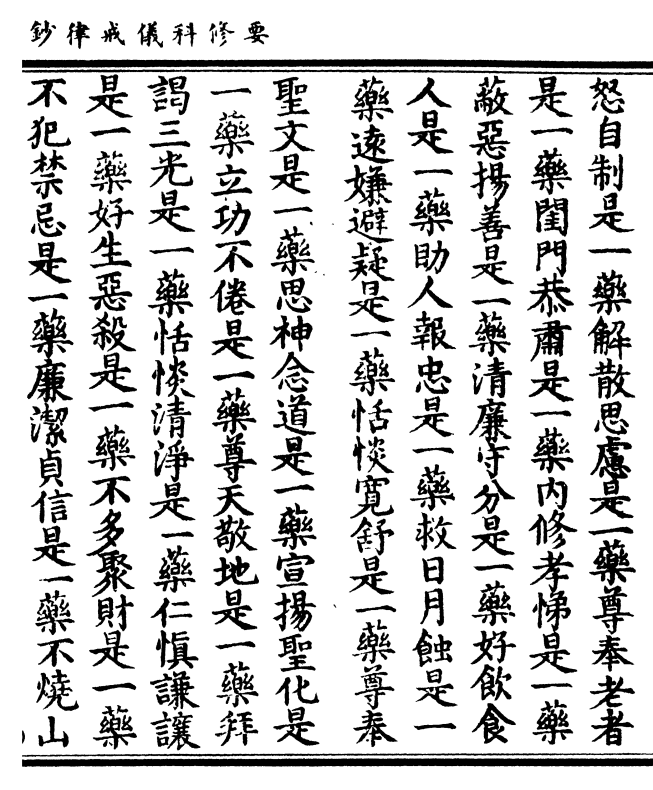 要修科儀戒律鈔
怒自制是一藥解散思慮是一藥尊奉老者
是一藥閨門恭肅是一藥內修孝悌是一藥
蔽惡揚善是一藥清廉守分是一藥好飲食
人是一藥助人報忠是一藥救日月蝕是一
藥遠嫌避疑是一藥恬惔寬舒是一藥尊奉
聖文是一藥思神念道是一藥宣揚聖化是
一藥立功不倦是一藥尊天敬地是一藥拜
謁三光是一藥恬惔清淨是一藥仁慎謙讓
是一藥好生惡殺是一藥不多聚財是一藥
不犯禁忌是一藥廉潔貞信是一藥不燒山